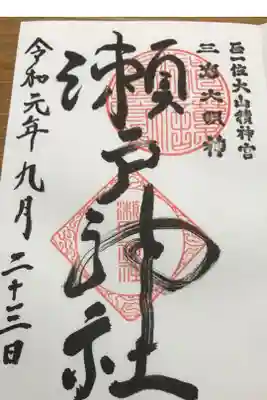 正一位大山積神宮
三島大明神
瀨戸神社
令和元年九月二十三日